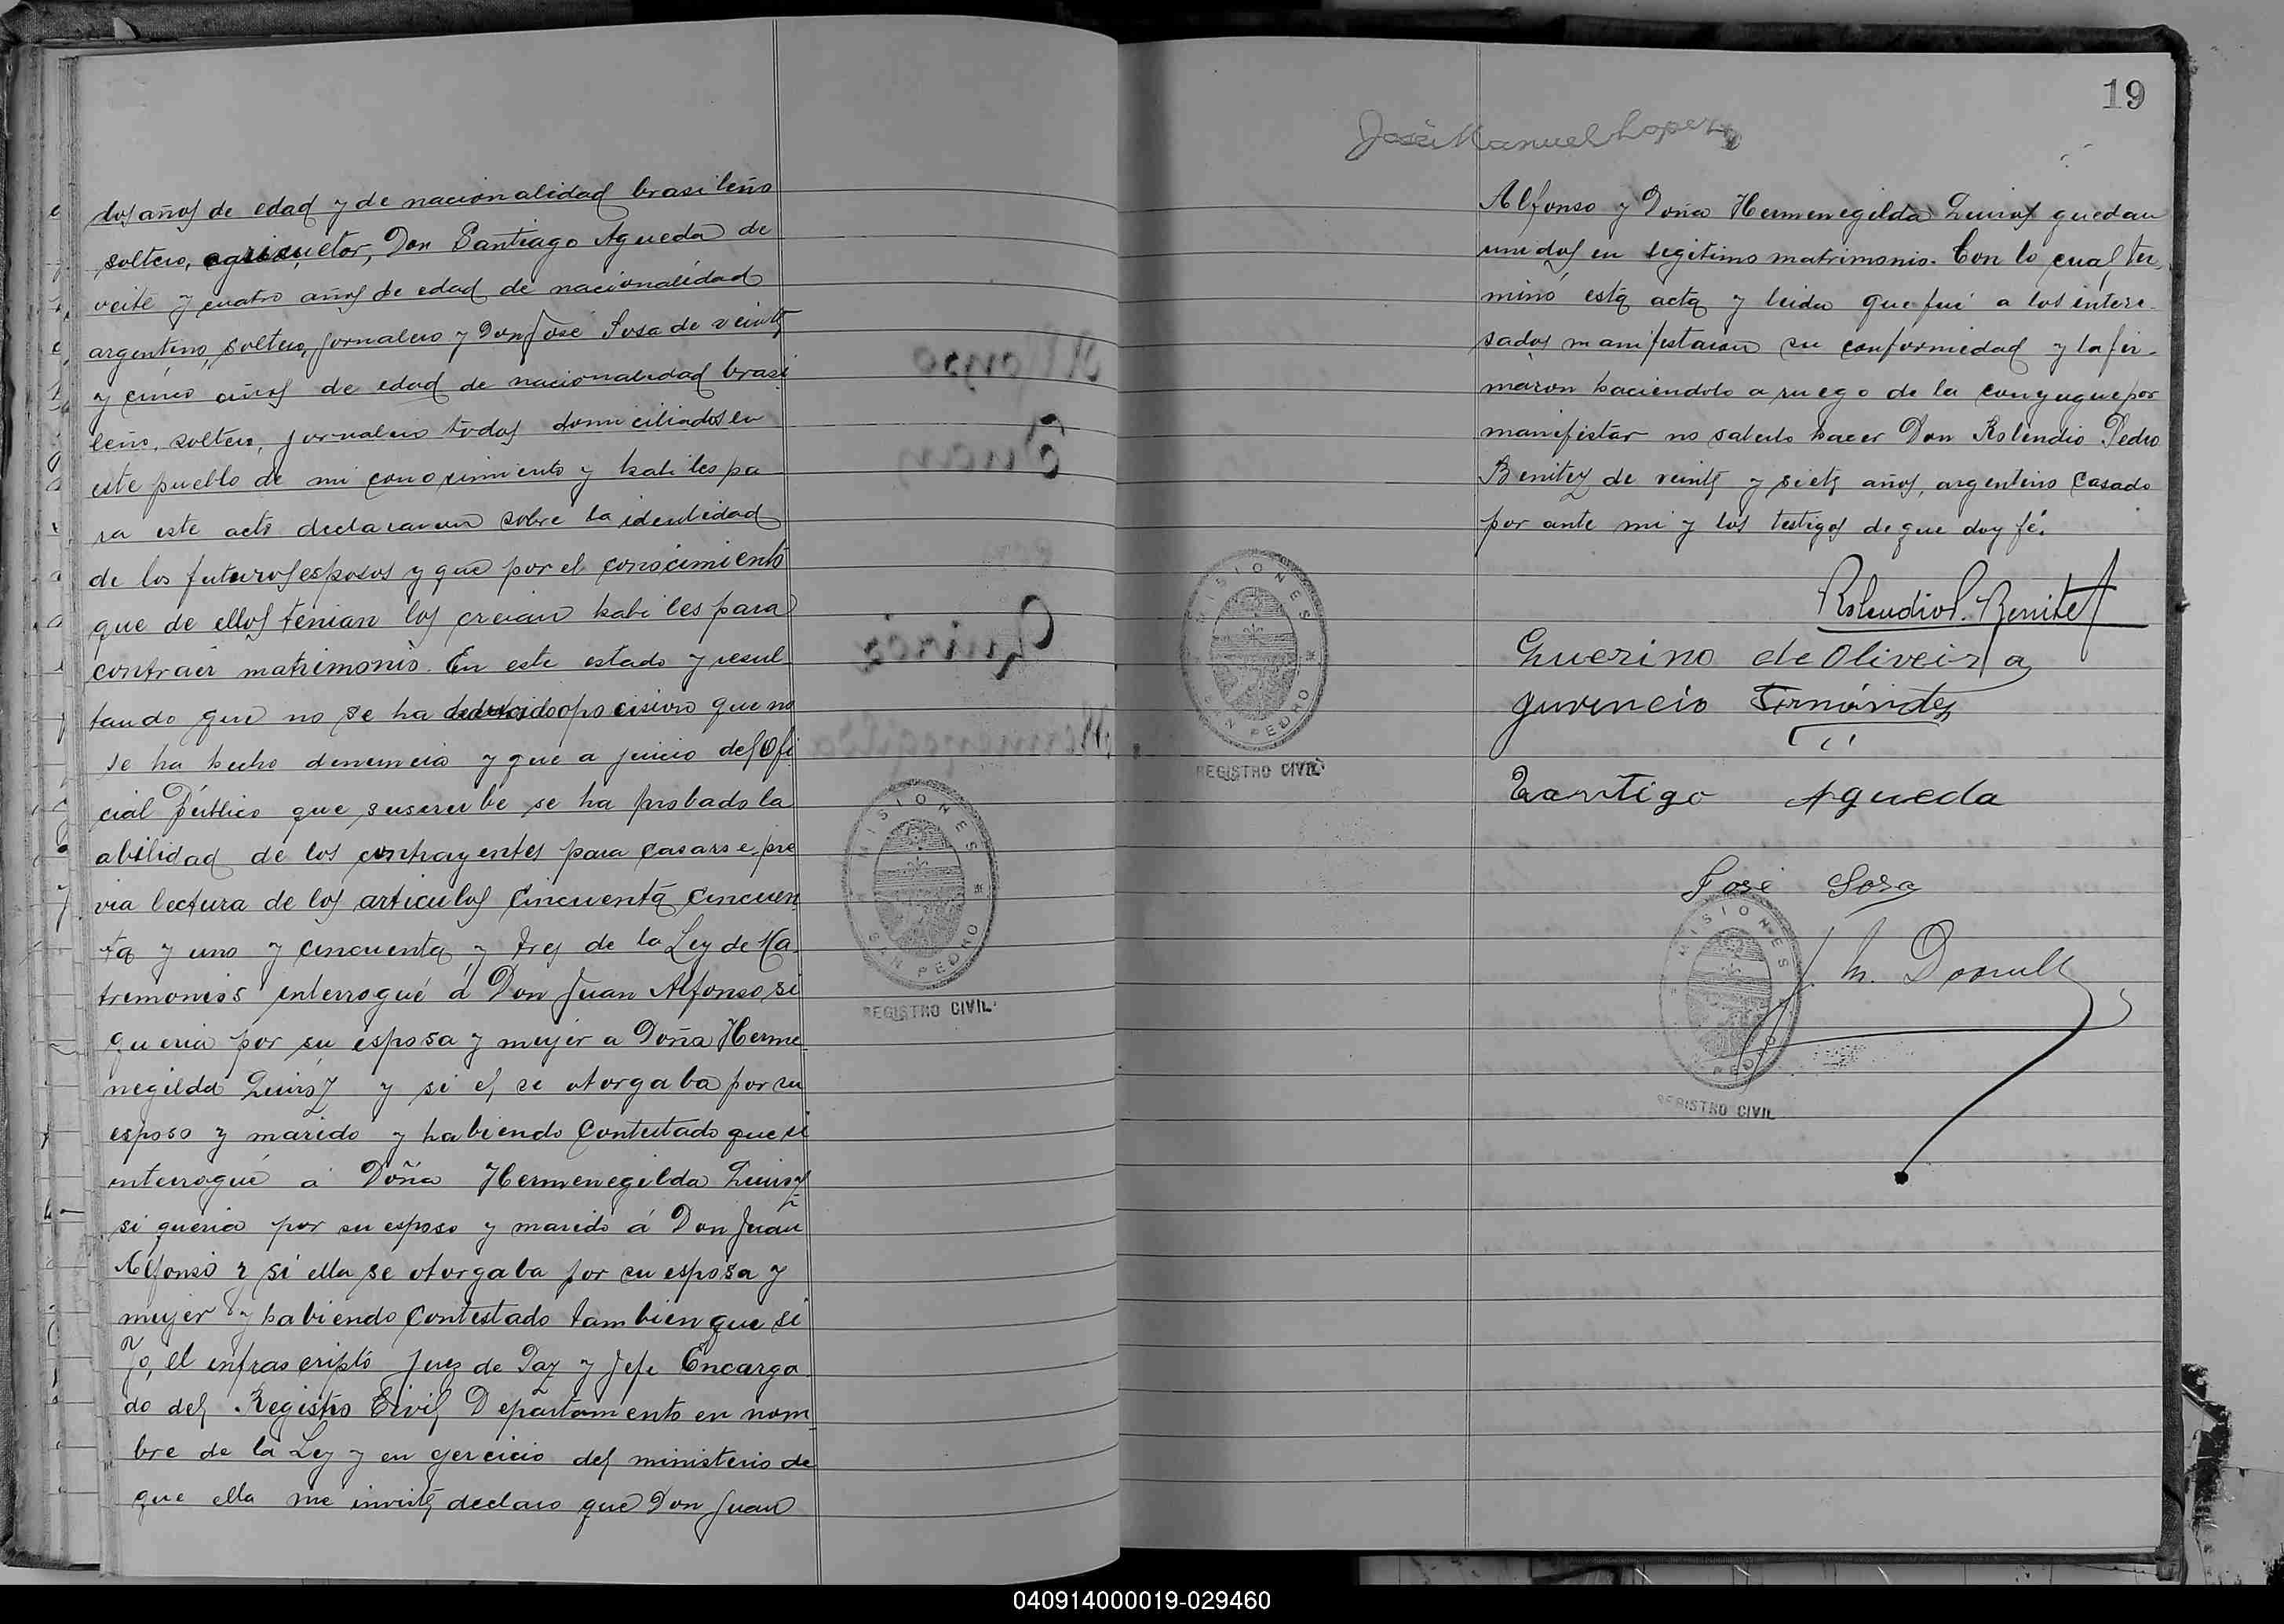 dos años de edad y de nacionalidad brasileño
soltero, agricultor, Don Santiago Agueda de
veite y cuatro años de edad de nacionalidad
argentino, soltero, jornalero y Don José Sosa de veinte
y cinco años de edad de nacionalidad brasi
leño, soltero, jornalero todos domiciliados en
este pueblo de mi conocimiento y habiles pa
ra este acto declararon sobre la identidad
de los futuros esposos y que por el conocimiento
que de ellos tenian los creian habiles para
contraer matrimonio. En este estado y resul
tando que no se ha deducido oposicion que no
se ha hecho denuncia y que a juicio del Ofi
cial Público que suscribe se ha probado la
abilidad de los contrayentes para casarse, pre
via lectura de los articulos cincuenta cincuen
ta y uno y cincuenta y tres de la Ley de Ma
trimonios interrogué á Don Juan Alfonso si
queria por su esposa y mujer a Doña Herme
negilda Quiroz y si el se otorgaba por su
esposo y marido y habiendo contestado que si
interrogué a Doña Hermenegilda Quiroz
si queria por su esposo y marido á Don Juan
Alfonso y si ella se otorgaba por su esposa y
mujer y habiendo contestado tambien que si
Yo, el infrascripto Juez de Paz y Jefe Encarga
do del Registro Civil Departamento en nom
bre de la Ley y en gercicio del ministerio de
que ella me inviste, declaro que Don Juan
MISIONES
SAN PEDRO
REGISTRO CIVIL
19
José Manuel Lopez
Alfonso y Doña Hermenegilda Quiroz quedan
unidos en legitimo matrimonio. Con lo cual ter
minó esta acta y leida que fué a los intere
sados manifestaron su conformidad y la fir
maron haciendolo a ruego de la conyugue por
manifestar no saberlo hacer Don Rolendio Pedro
Benitez de veinte y siete años, argentino casado
por ante mi y los testigos de que doy fé.
MISIONES
SAN PEDRO
REGISTRO CIVIL
Rolendio P. Benitez
Guerino de Oliveira
Juvencio Fernández
Santigo Agueda
José Sosa
MISIONES
PEDRO
REGISTRO CIVIL
040914000019-029460